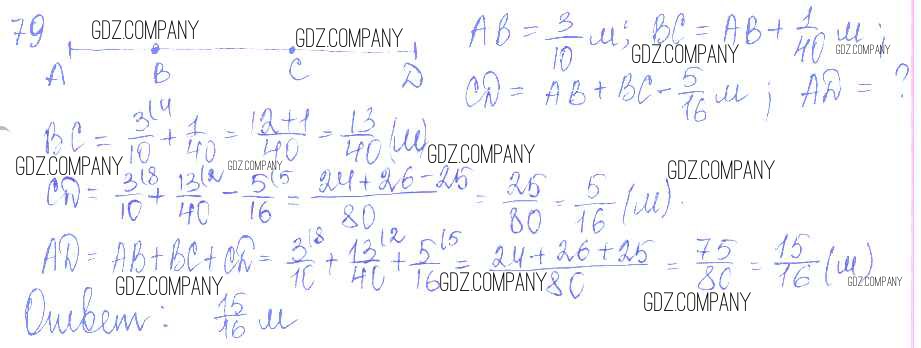 79 GDZ.COMPANY GDZ.COMPANY AB = 3/10 м; BC = AB + 1/40 м;
GDZ.COMPANY GDZ.COMPANY
A B C D CD = AB + BC - 5/16 м; AD = ?
BC = 3(4/10 + 1/40 = 12+1/40 = 13/40 (м)
GDZ.COMPANY GDZ.COMPANY GDZ.COMPANY GDZ.COMPANY
CD = 3(8/10 + 13(2/40 - 5(5/16 = 24+26-25/80 = 25/80 = 5/16 (м).
AD = AB+BC+CD = 3(8/10 + 13(2/40 + 5(5/16 = 24+26+25/80 = 75/80 = 15/16 (м)
GDZ.COMPANY GDZ.COMPANY GDZ.COMPANY GDZ.COMPANY
Ответ: 15/16 м